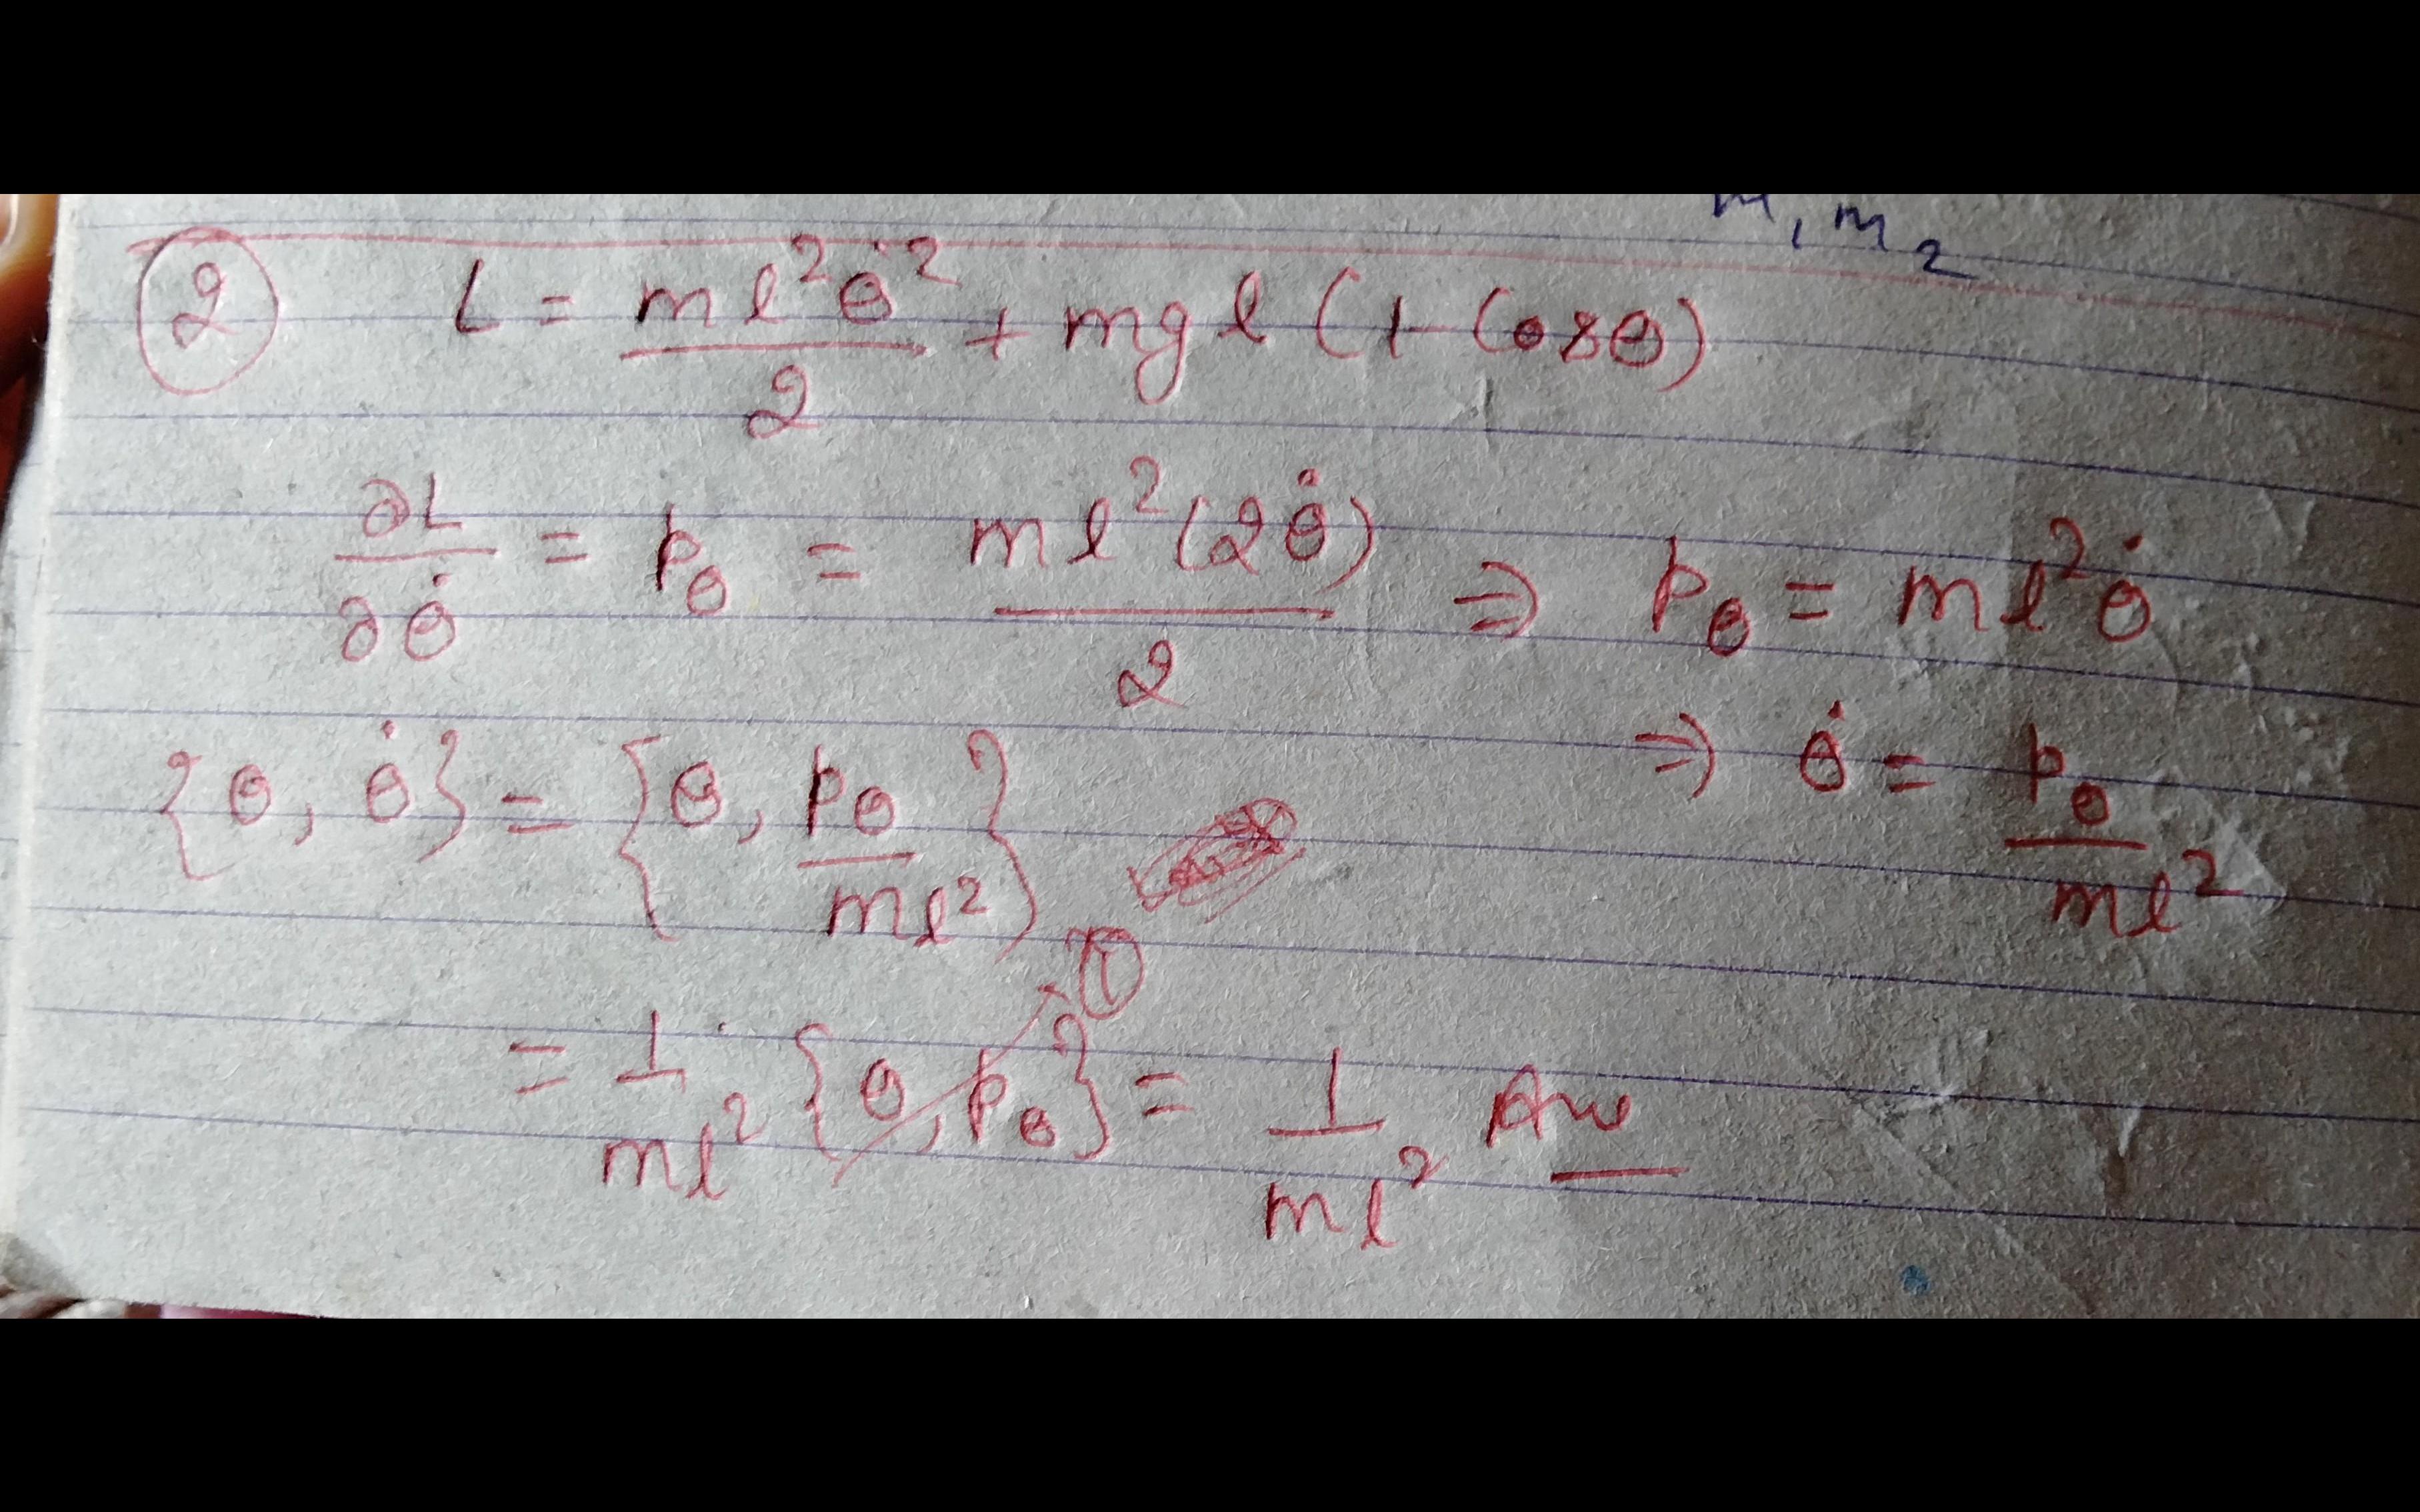 m₁ m₂
② L = ml²θ̇²/2 + mgl (1 - Cosθ)
∂L/∂θ̇ = pθ = ml²(2θ̇)/2 ⇒ pθ = ml²θ̇
⇒ θ̇ = pθ/ml²
{θ, θ̇} = {θ, pθ/ml²}
= 1/ml² {θ, pθ}→① = 1/ml² Ans